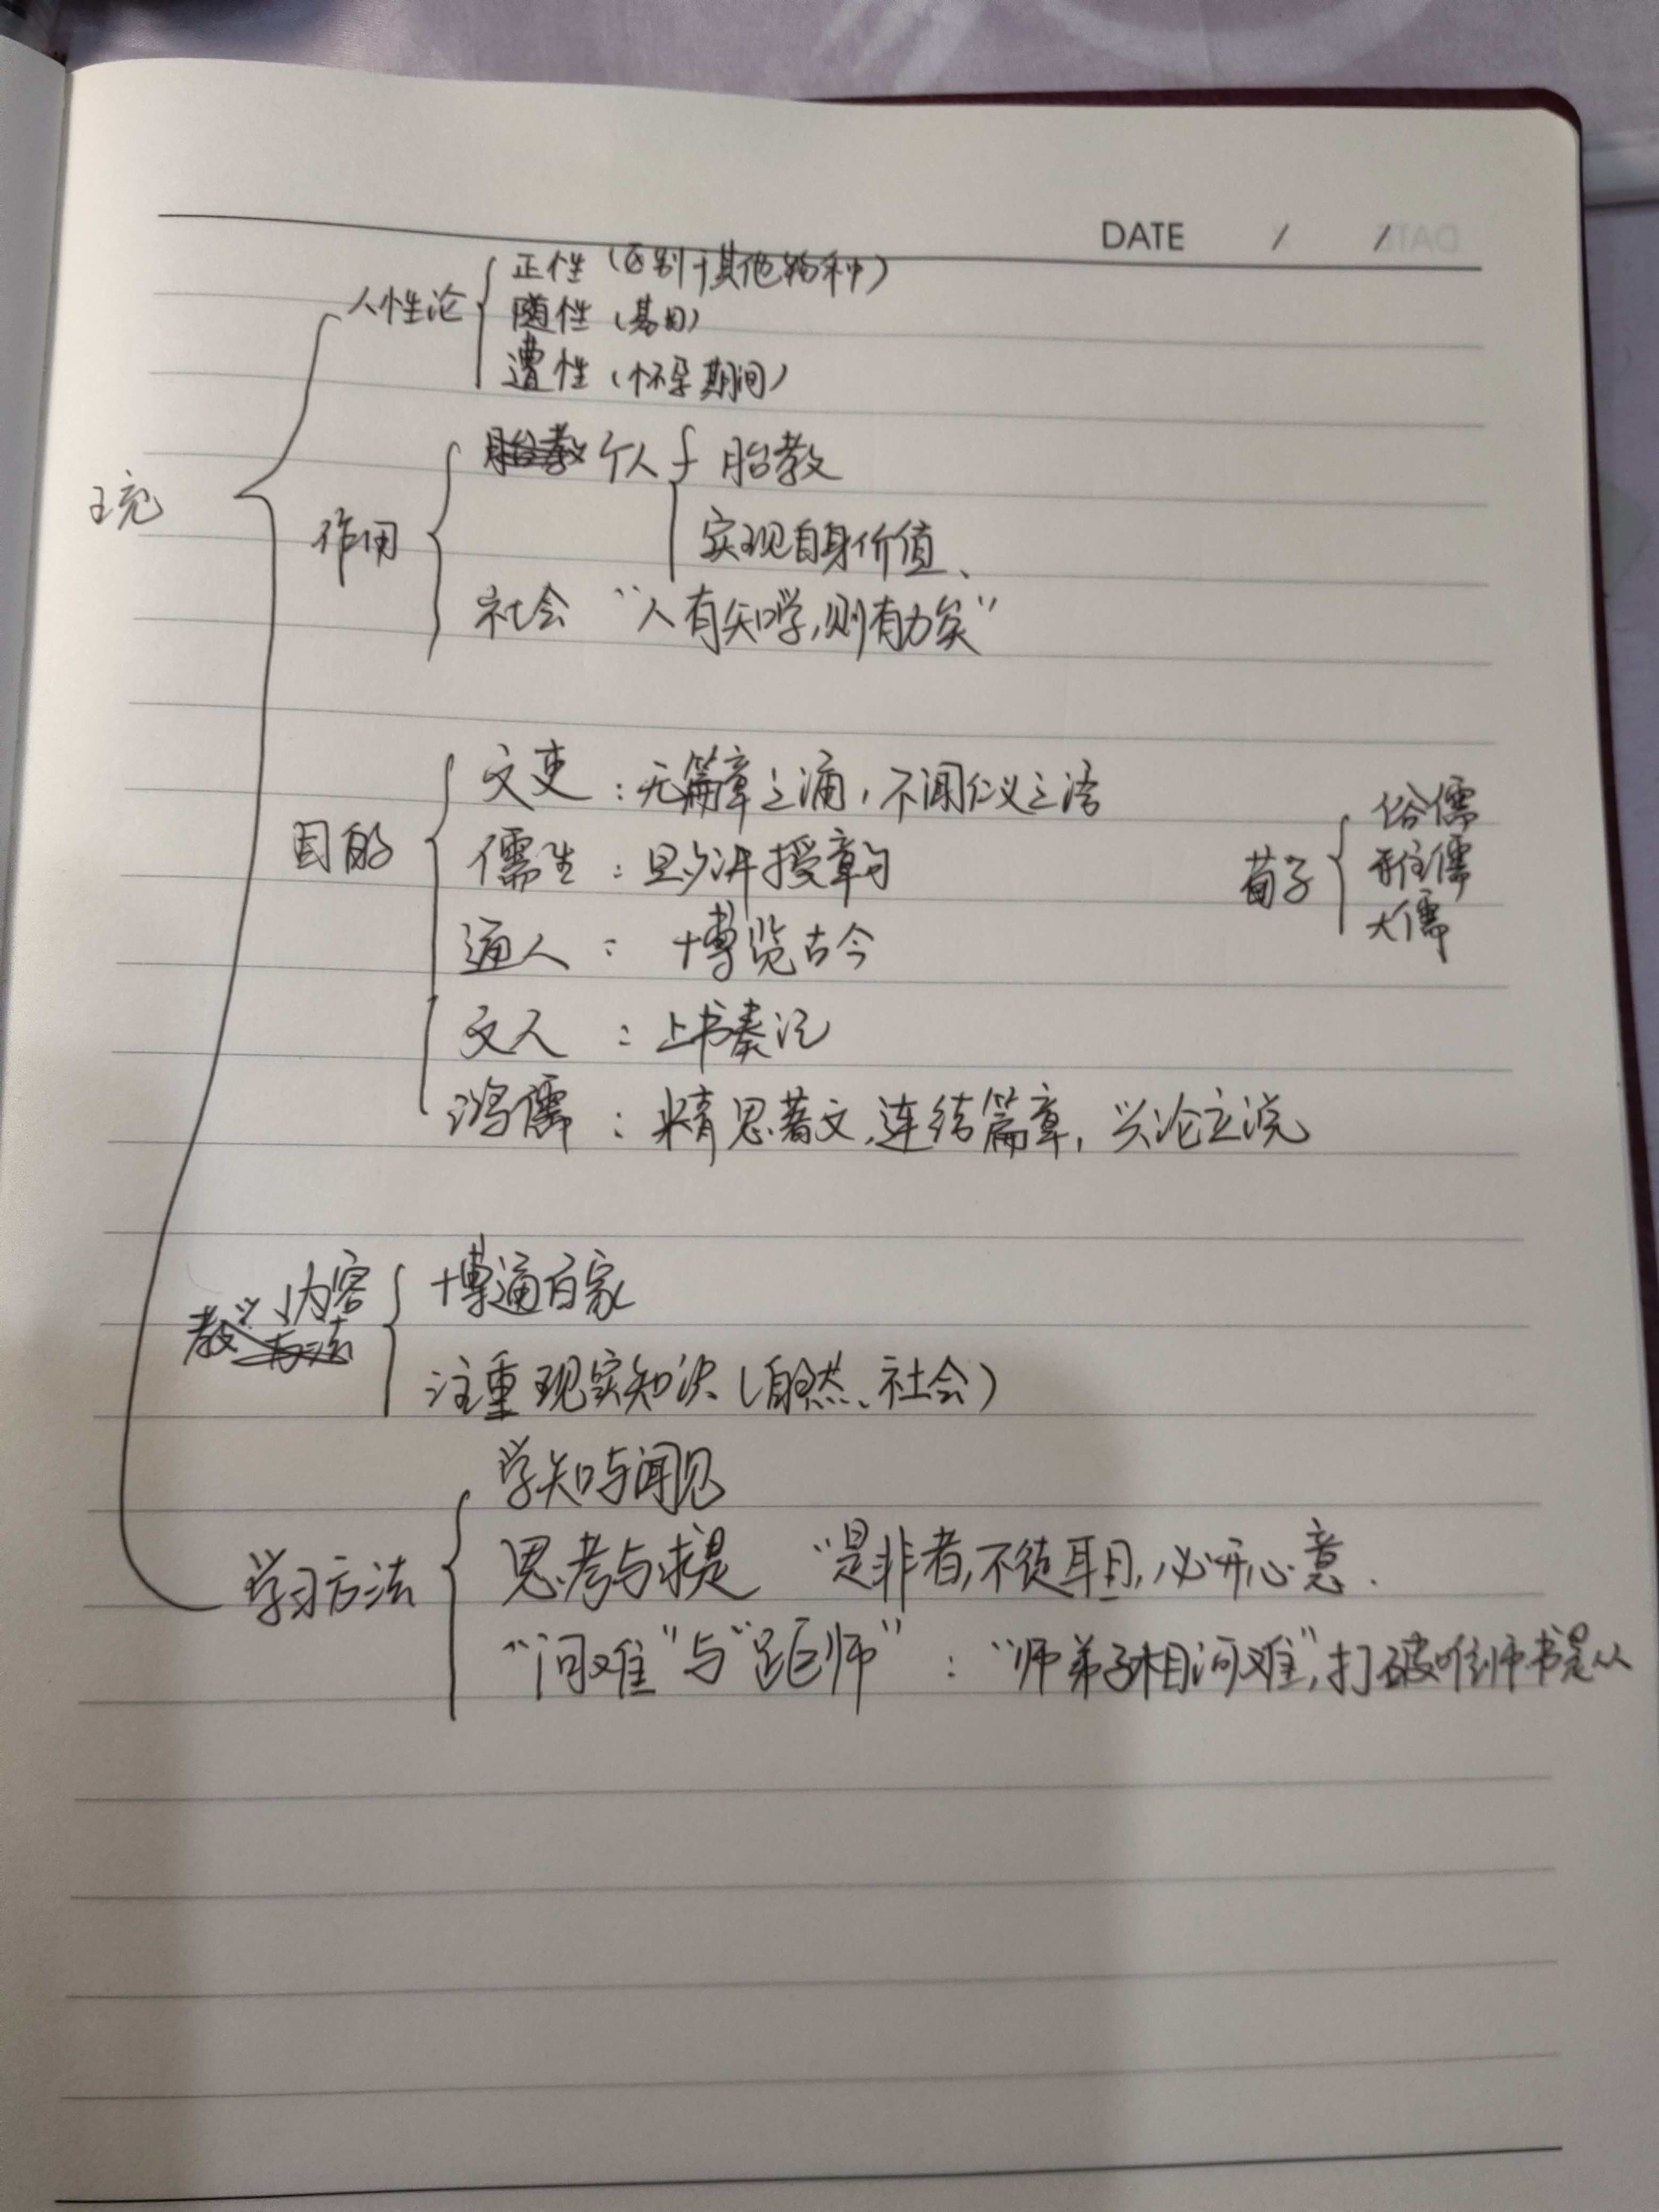 DATE / /
人性论
正性（区别于其他物种）
随性（基因）
遭性（怀孕期间）
王充
作用
个人
胎教
实现自身价值、
社会 “人有知学,则有力矣”
目的
文吏：无篇章之诵，不闻仁义之语
儒生：旦夕讲授章句
通人：博览古今
文人：上书奏记
鸿儒：精思著文,连结篇章，兴论立说
荀子
俗儒
雅儒
大儒
教学内容
博通百家
注重现实知识（自然、社会）
学习方法
学知与闻见
思考与求是 “是非者,不徒耳目,必开心意.
“问难”与“距师”：“师弟子相问难”,打破唯师书是从